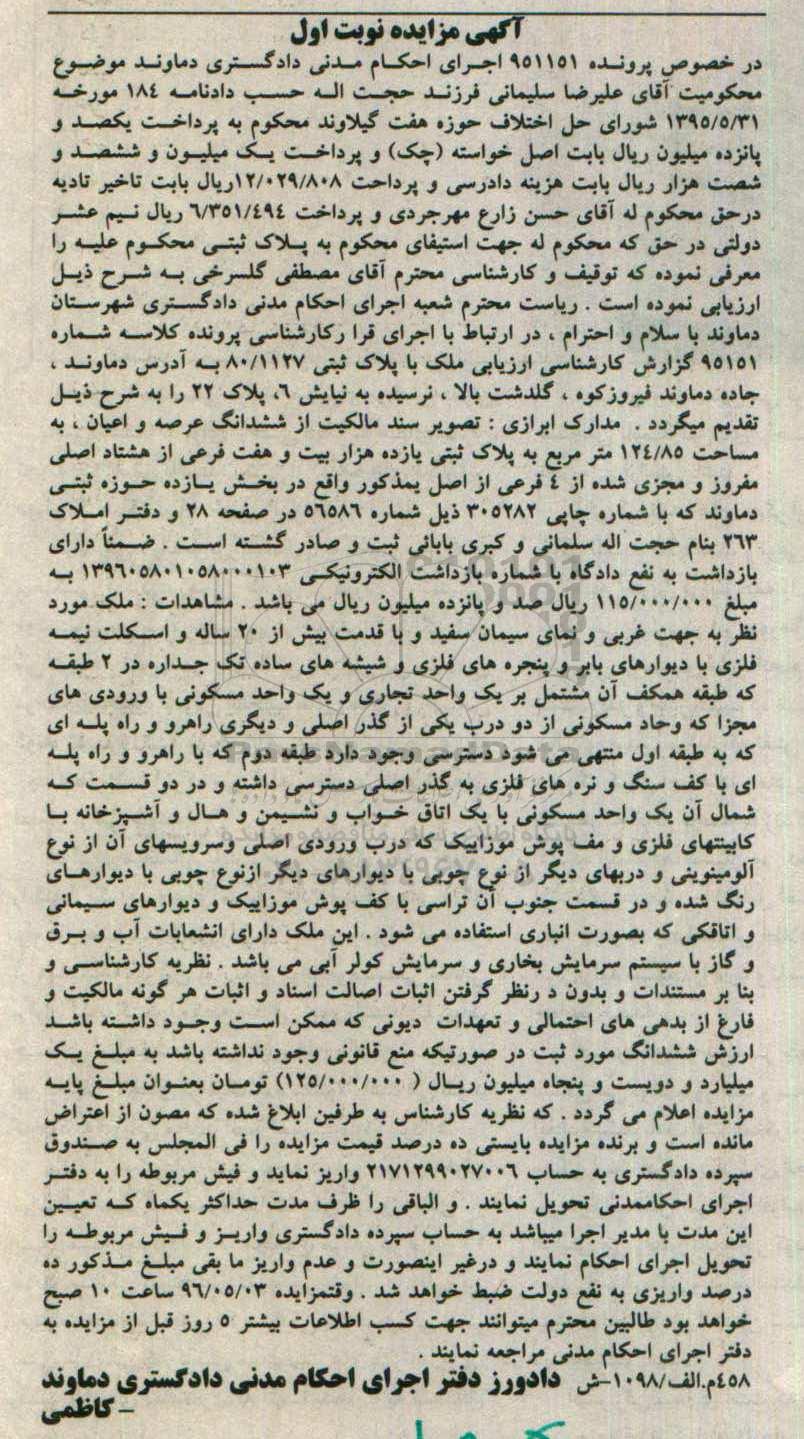 آگهی مزایده نوبت اول
در خصوص پرونده ۹۵۱۱۵۱ اجرای احکام مدنی دادگستری دماوند موضوع
محکومیت آقای علیرضا سلیمانی فرزند حجت اله حسب دادنامه ۱۸٤ مورخه
۱۳۹۵/۵/۳۱ شورای حل اختلاف حوزه هفت گیلاوند محکوم به پرداخت یکصد و
پانزده میلیون ریال بابت اصل خواسته (چک) و پرداخت یک میلیون و ششصد و
شصت هزار ریال بابت هزینه دادرسی و پرداحت ۱۲/۰۲۹/۸۰۸ریال بابت تاخیر تادیه
درحق محکوم له آقای حسن زارع مهرجردی و پرداخت ٦/۳۵۱/٤۹٤ ریال نیم عشر
دولتی در حق که محکوم له جهت استیفای محکوم به پلاک ثبتی محکوم علیه را
معرفی نموده که توقیف و کارشناسی محترم آقای مصطفی گلسرخی به شرح ذیل
ارزیابی نموده است . ریاست محترم شعبه اجرای احکام مدنی دادگستری شهرستان
دماوند با سلام و احترام ، در ارتباط با اجرای قرا رکارشناسی پرونده کلاسه شماره
۹۵۱۵۱ گزارش کارشناسی ارزیابی ملک با پلاک ثبتی ۸۰/۱۱۲۷ به آدرس دماوند ،
جاده دماوند فیروزکوه ، گلدشت بالا ، نرسیده به نیایش ٦، پلاک ۲۲ را به شرح ذیل
تقدیم میگردد . مدارک ابرازی : تصویر سند مالکیت از ششدانگ عرصه و اعیان ، به
مساحت ۱۲٤/۸۵ متر مربع به پلاک ثبتی یازده هزار بیت و هفت فرعی از هشتاد اصلی
مفروز و مجزی شده از ٤ فرعی از اصل یمذکور واقع در بخش یازده حوزه ثبتی
دماوند که با شماره چاپی ۳۰۵۲۸۲ ذیل شماره ۵٦۵۸٦ در صفحه ۲۸ و دفتر املاک
۲٦۳ بنام حجت اله سلمانی و کبری بابائی ثبت و صادر گشته است . ضمناً دارای
بازداشت به نفع دادگاه با شماره بازداشت الکترونیکی ۱۳۹٦۰۵۸۰۱۰۵۸۰۰۰۱۰۳ به
مبلغ ۱۱۵/۰۰۰/۰۰۰ ریال صد و پانزده میلیون ریال می باشد . مشاهدات : ملک مورد
نظر به جهت غربی و نمای سیمان سفید و با قدمت بیش از ۲۰ ساله و اسکلت نیمه
فلزی با دیوارهای بابر و پنجره های فلزی و شیشه های ساده تک جداره در ۲ طبقه
که طبقه همکف آن مشتمل بر یک واحد تجاری و یک واحد مسکونی با ورودی های
مجزا که وحاد مسکونی از دو درب یکی از گذر اصلی و دیگری راهرو و راه پله ای
که به طبقه اول منتهی می شود دسترسی وجود دارد طبقه دوم که با راهرو و راه پله
ای با کف سنگ و نره های فلزی به گذر اصلی دسترسی داشته و در دو قسمت که
شمال آن یک واحد مسکونی با یک اتاق خواب و نشیمن و هال و آشپزخانه با
کابینتهای فلزی و مف پوش موزاییک که درب ورودی اصلی وسرویسهای آن از نوع
آلومینوینی و دربهای دیگر از نوع چوبی با دیوارهای دیگر ازنوع چوبی با دیوارهای
رنگ شده و در قسمت جنوب آن تراسی با کف پوش موزاییک و دیوارهای سیمانی
و اتاقکی که بصورت انباری استفاده می شود . این ملک دارای انشعابات آب و برق
و گاز با سیستم سرمایش بخاری و سرمایش کولر آبی می باشد . نظریه کارشناسی و
بنا بر مستندات و بدون د رنظر گرفتن اثبات اصالت اسناد و اثبات هر گونه مالکیت و
فارغ از بدهی های احتمالی و تعهدات دیونی که ممکن است وجود داشته باشد
ارزش ششدانگ مورد ثبت در صورتیکه منع قانونی وجود نداشته باشد به مبلغ یک
میلیارد و دویست و پنجاه میلیون ریال ( ۱۲۵/۰۰۰/۰۰۰) تومان بعنوان مبلغ پایه
مزایده اعلام می گردد . که نظریه کارشناس به طرفین ابلاغ شده که مصون از اعتراض
مانده است و برنده مزایده بایستی ده درصد قیمت مزایده را فی المجلس به صندوق
سپرده دادگستری به حساب ۲۱۷۱۲۹۹۰۲۷۰۰٦ واریز نماید و فیش مربوطه را به دفتر
اجرای احکاممدنی تحویل نمایند . و الباقی را ظرف مدت حداکثر یکماه که تعیین
این مدت با مدیر اجرا میباشد به حساب سپرده دادگستری واریز و فیش مربوطه را
تحویل اجرای احکام نمایند و درغیر اینصورت و عدم واریز ما بقی مبلغ مذکور ده
درصد واریزی به نفع دولت ضبط خواهد شد . وقتمزایده ۹٦/۰۵/۰۳ ساعت ۱۰ صبح
خواهد بود طالبین محترم میتوانند جهت کسب اطلاعات بیشتر ۵ روز قبل از مزایده به
دفتر اجرای احکام مدنی مراجعه نمایند .
٤۵۸م.الف/۱۰۹۸-ش دادورز دفتر اجرای احکام مدنی دادگستری دماوند
- کاظمی